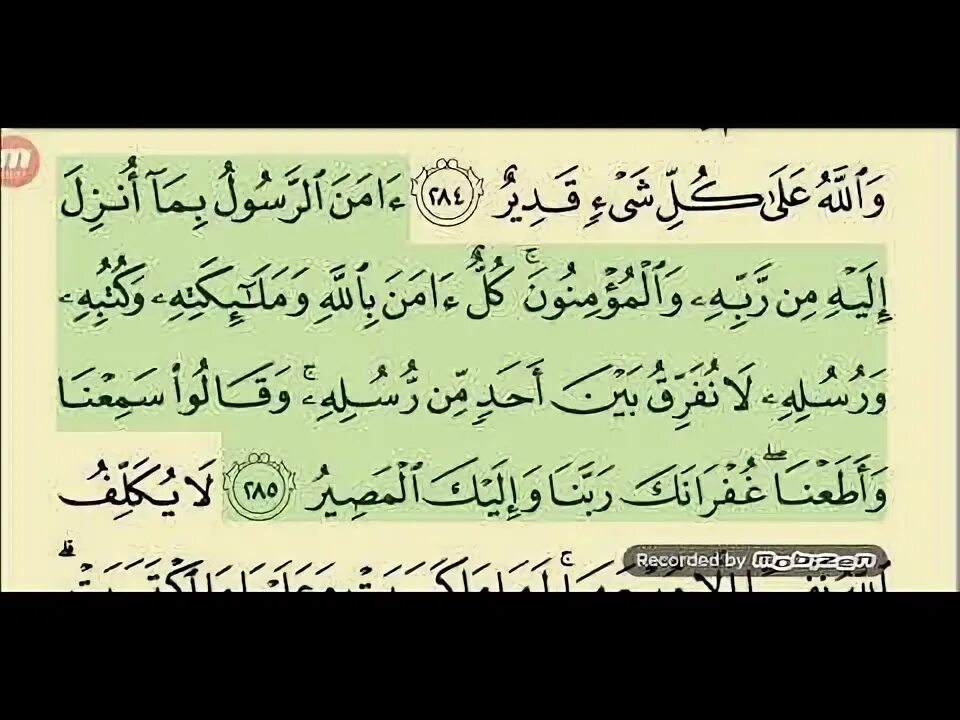 وَٱللَّهُ عَلَىٰ كُلِّ شَىْءٍ قَدِيرٌ ٢٨٤ ءَامَنَ ٱلرَّسُولُ بِمَآ أُنزِلَ
إِلَيْهِ مِن رَّبِّهِۦ وَٱلْمُؤْمِنُونَ ۚ كُلٌّ ءَامَنَ بِٱللَّهِ وَمَلَٰٓئِكَتِهِۦ وَكُتُبِهِۦ
وَرُسُلِهِۦ لَا نُفَرِّقُ بَيْنَ أَحَدٍ مِّن رُّسُلِهِۦ ۚ وَقَالُوا۟ سَمِعْنَا
وَأَطَعْنَا ۖ غُفْرَانَكَ رَبَّنَا وَإِلَيْكَ ٱلْمَصِيرُ ٢٨٥ لَا يُكَلِّفُ
Recorded by mobizen